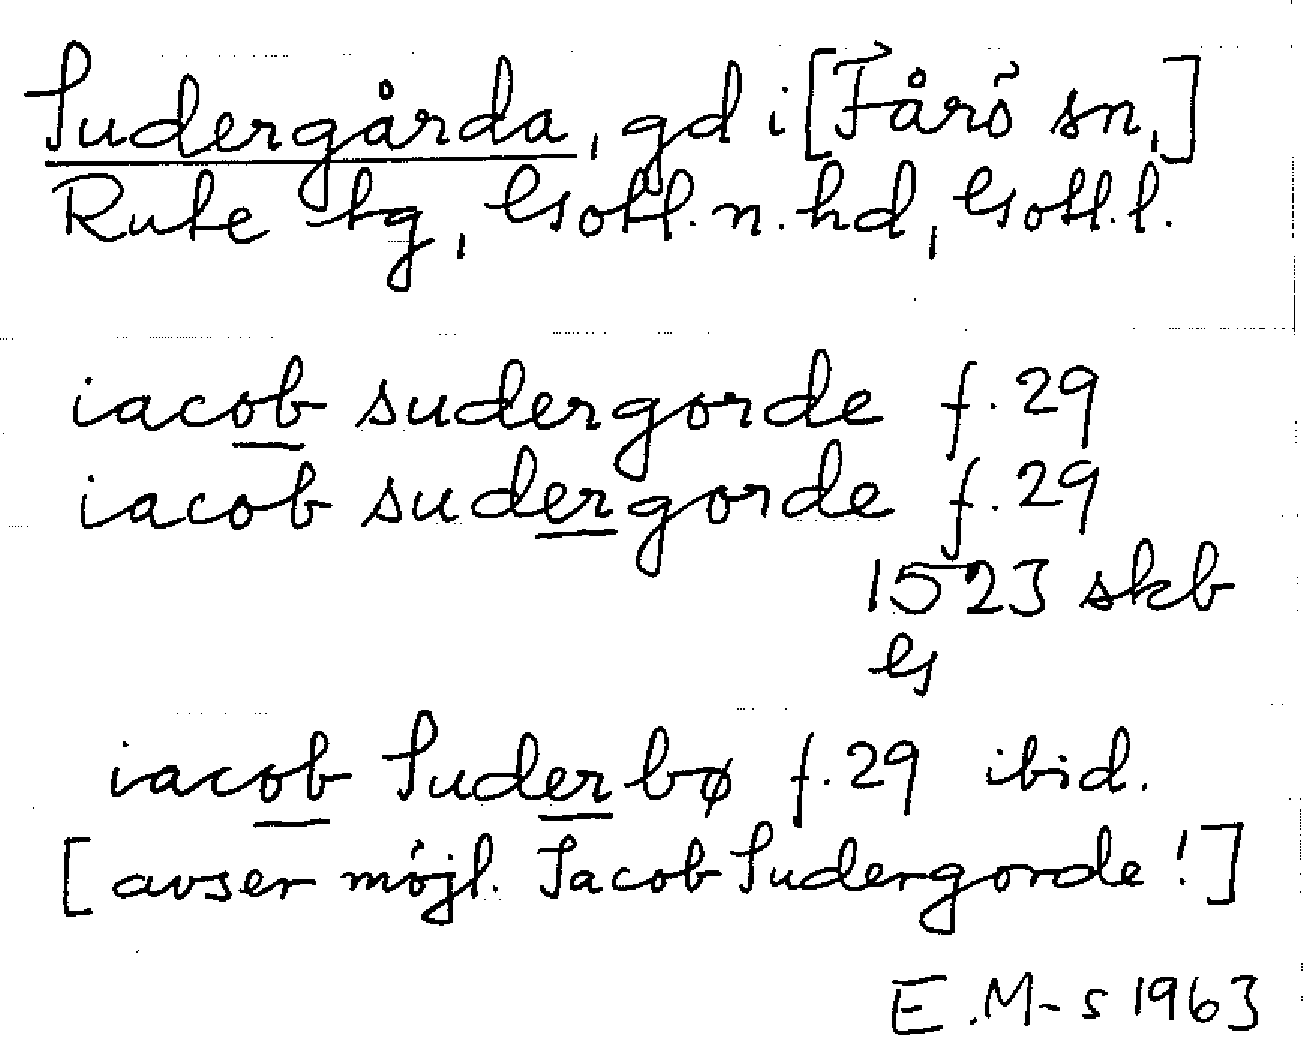 Sudergårda, gd i [Fårö sn,]
Rute tg, Gotl. n. hd, Gotl. l.
iacob sudergorde f. 29
iacob sudergorde f. 29
1523 skb
G
iacob Suderbø f. 29 ibid.
[avser möjl. Jacob Sudergorde!]
E.M-s 1963